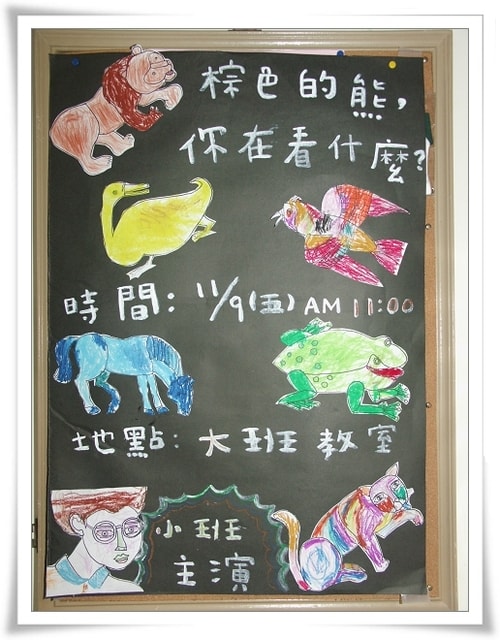 棕色的熊,
你在看什麼?
時間: 11/9(五) AM 11:00
地點: 大班教室
小班
主演